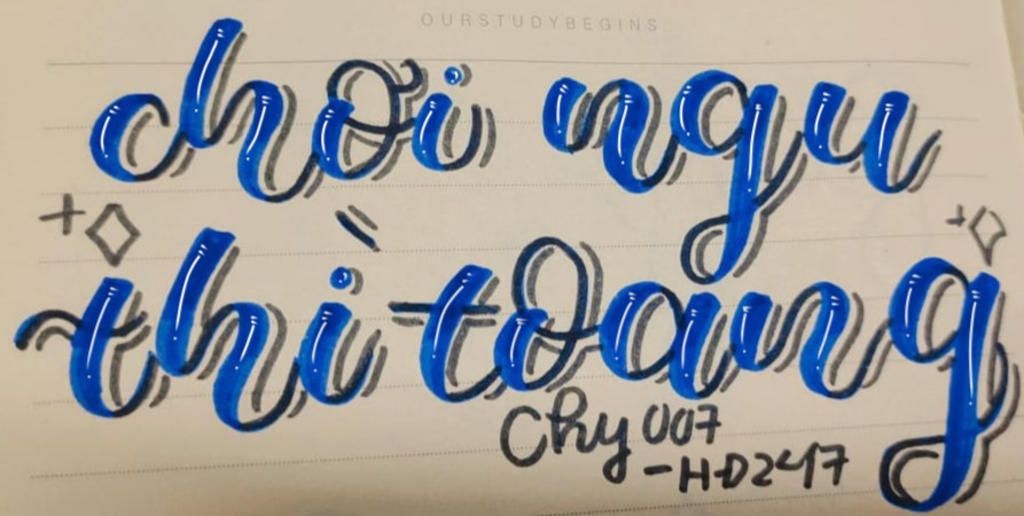 OURSTUDYBEGINS
chơi ngu
thì toang
Chy007
-HD247